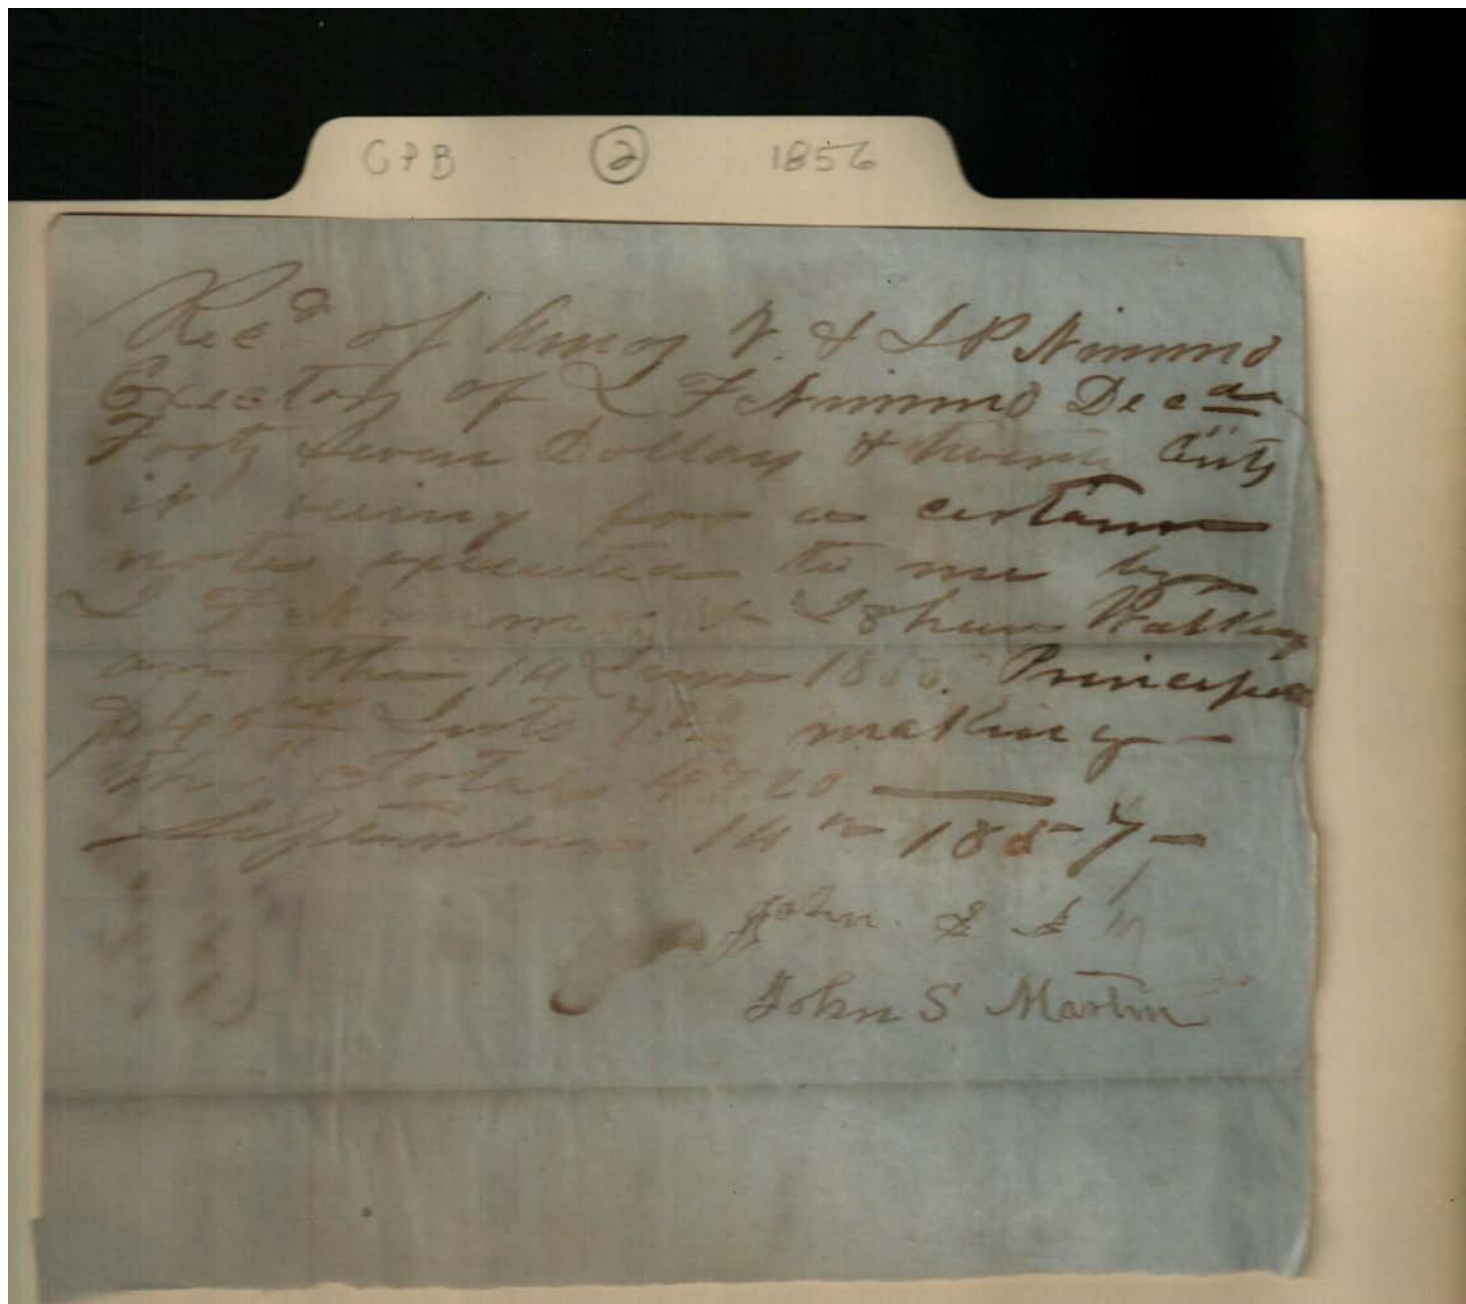 GPB 2 1856
Recd of Amos W. & J P Nimmo
Exectors of L F Nimmo Decd
Forty Seven Dollars & twenty Cents
it being for a certain
note executed to me by
L F Nimmo & Walker
on the 14 June 1855. Principle
$40.00 Ints 7.20 making
the total 47 20
September 14th 1857
John S
John S Martin